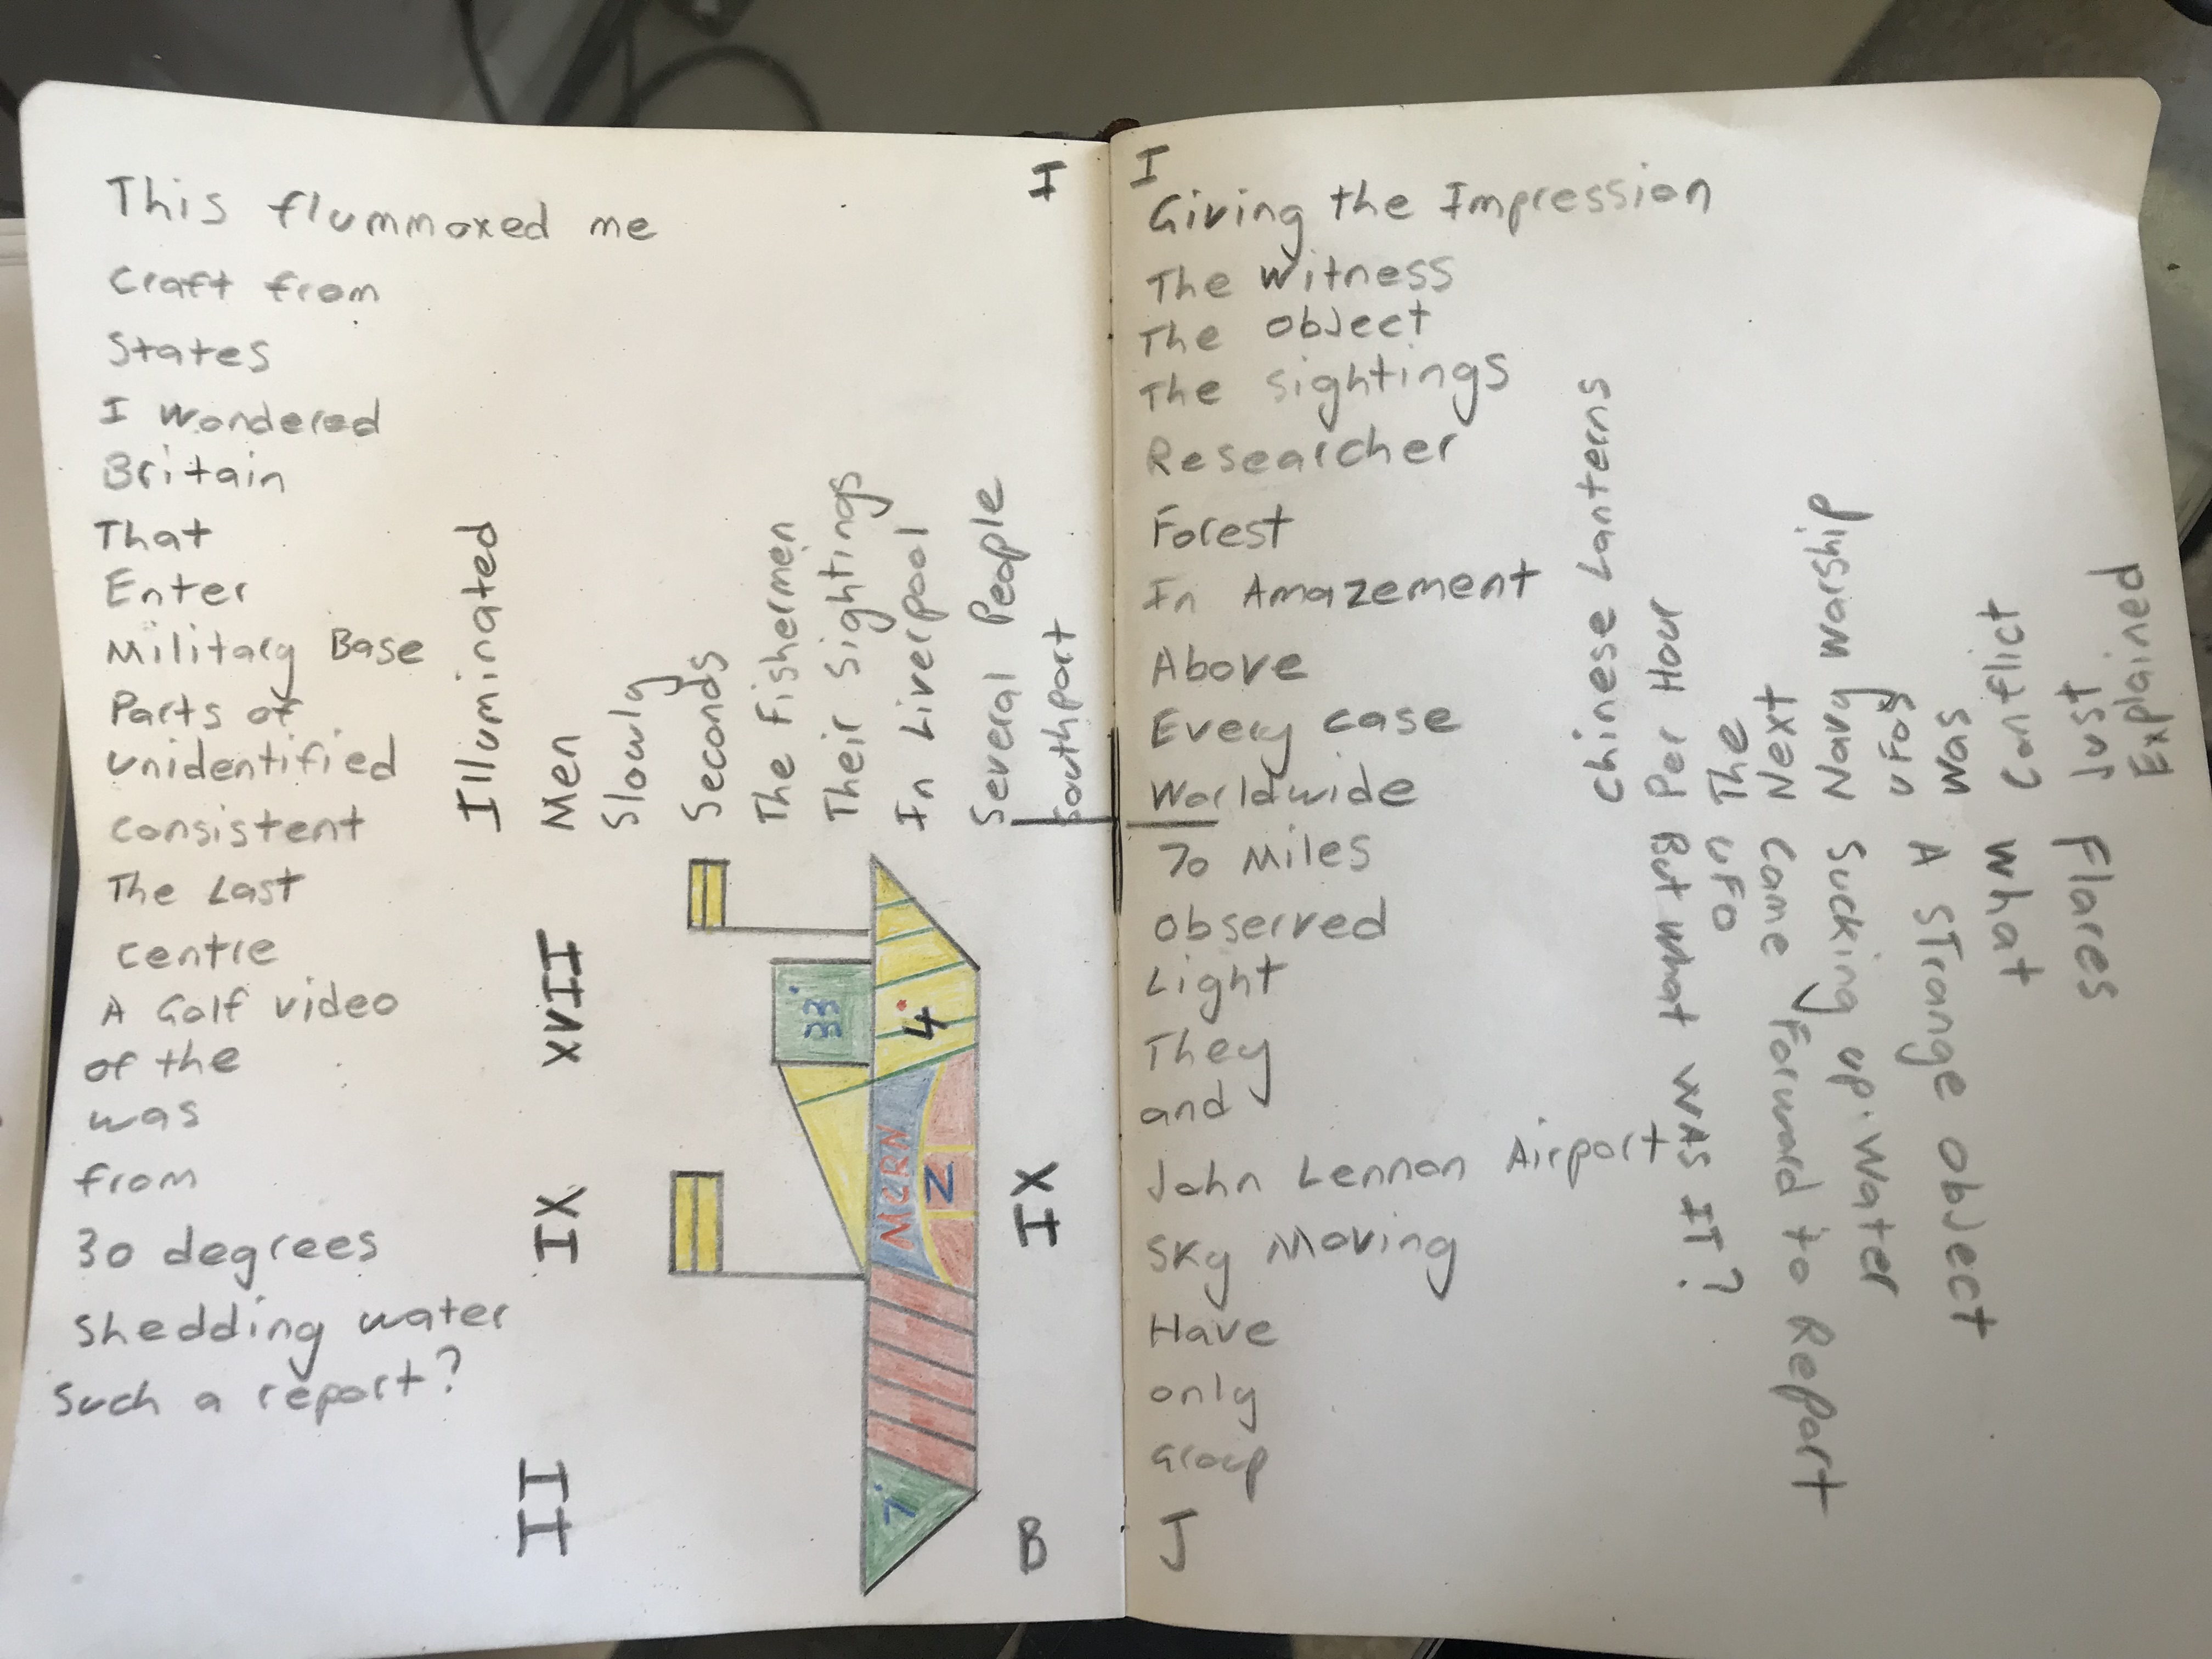 This flummoxed me
craft from
States
I wondered
Britain
That
Enter
Military Base
Parts of
unidentified
consistent
The Last
centre
A Golf video
of the
was
from
30 degrees
Shedding water
Such a report?
Illuminated
Men
Slowly
Seconds
The Fishermen
Their Sightings
In Liverpool
Several People
Southport
II
IX
XVII
33
7
MCRN
N
4
B
IX
I
I
Giving the Impression
The witness
The object
The Sightings
Researcher
Forest
In Amazement
Above
Every case
Worldwide
70 Miles
observed
Light
They
and
John Lennon Airport
Sky Moving
Have
only
Group
J
Chinese Lanterns
Per Hour
The
Next
Navy Warship
UFOS
was
Conflict
Just
Explained
Flares
What
A Strange object
Sucking up water
came Forward to Report
UFO
But What WAS IT?